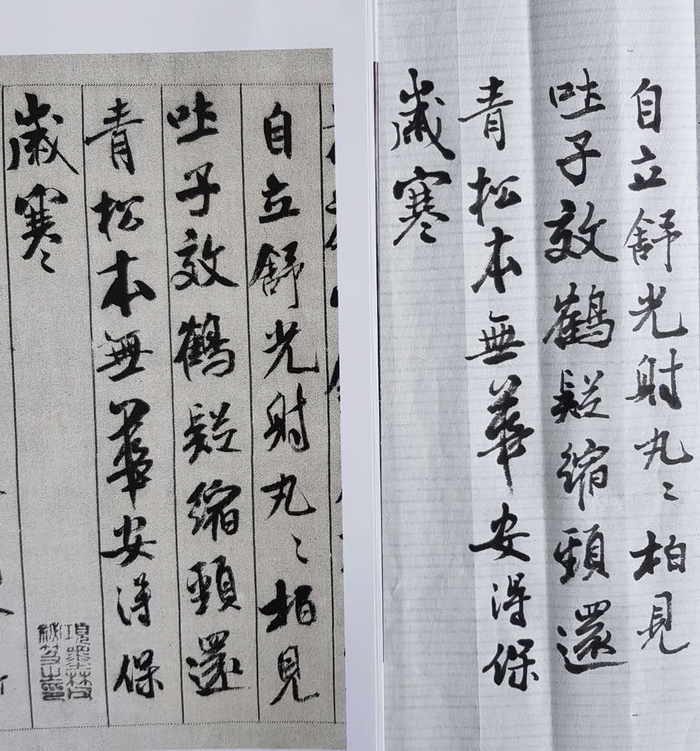 自立舒光射丸〻柏見
吐子效鶴疑縮頸還
青松本無華安得保
歲寒
項墨林父
祕笈之印
自立舒光射丸〻柏見
吐子效鶴疑縮頸還
青松本無華安得保
歲寒